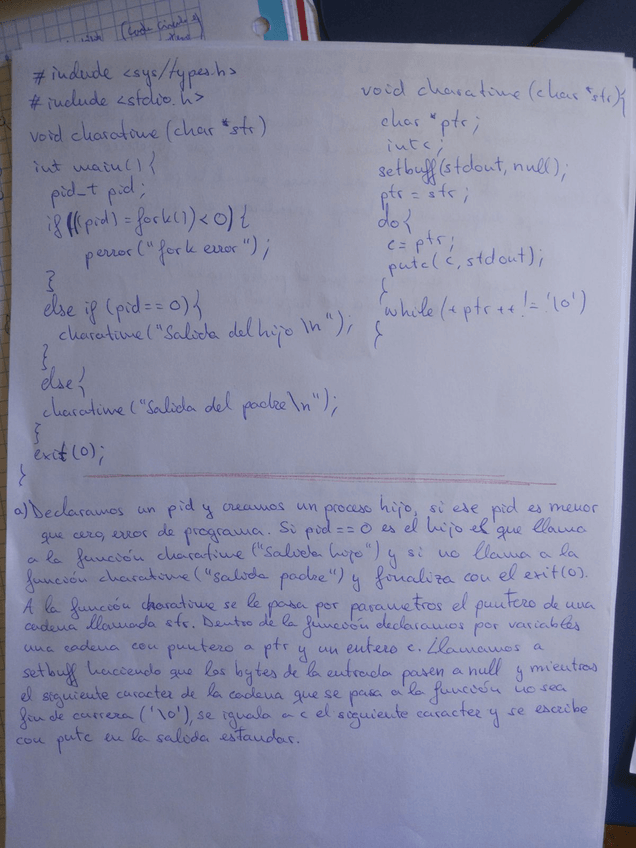 # include <sys/types.h>
# include <stdio.h>
void charatime (char *str)
int main() {
pid_t pid;
if ((pid) = fork()) < 0) {
perror("fork error");
}
else if (pid == 0) {
charatime("Salida del hijo \n");
}
else {
charatime("Salida del padre\n");
}
exit(0);
}
void charatime (char *str) {
char *ptr;
int c;
setbuff(stdout, null);
ptr = str;
do {
c = ptr;
putc( c, stdout);
}
while (* ptr ++ != '\0')
}
a) Declaramos un pid y creamos un proceso hijo, si ese pid es menor
que cero, error de programa. Si pid == 0 es el hijo el que llama
a la función charatime ("Salida hijo") y si no llama a la
función charatime ("salida padre") y finaliza con el exit(0).
A la función charatime se le pasa por parametros el puntero de una
cadena llamada str. Dentro de la función declaramos por variables
una cadena con puntero a ptr y un entero c. Llamamos a
setbuff haciendo que los bytes de la entrada pasen a null y mientras
el siguiente caracter de la cadena que se pasa a la función no sea
fin de carrera ('\0'), se iguala a c el siguiente caracter y se escribe
con putc en la salida estandar.